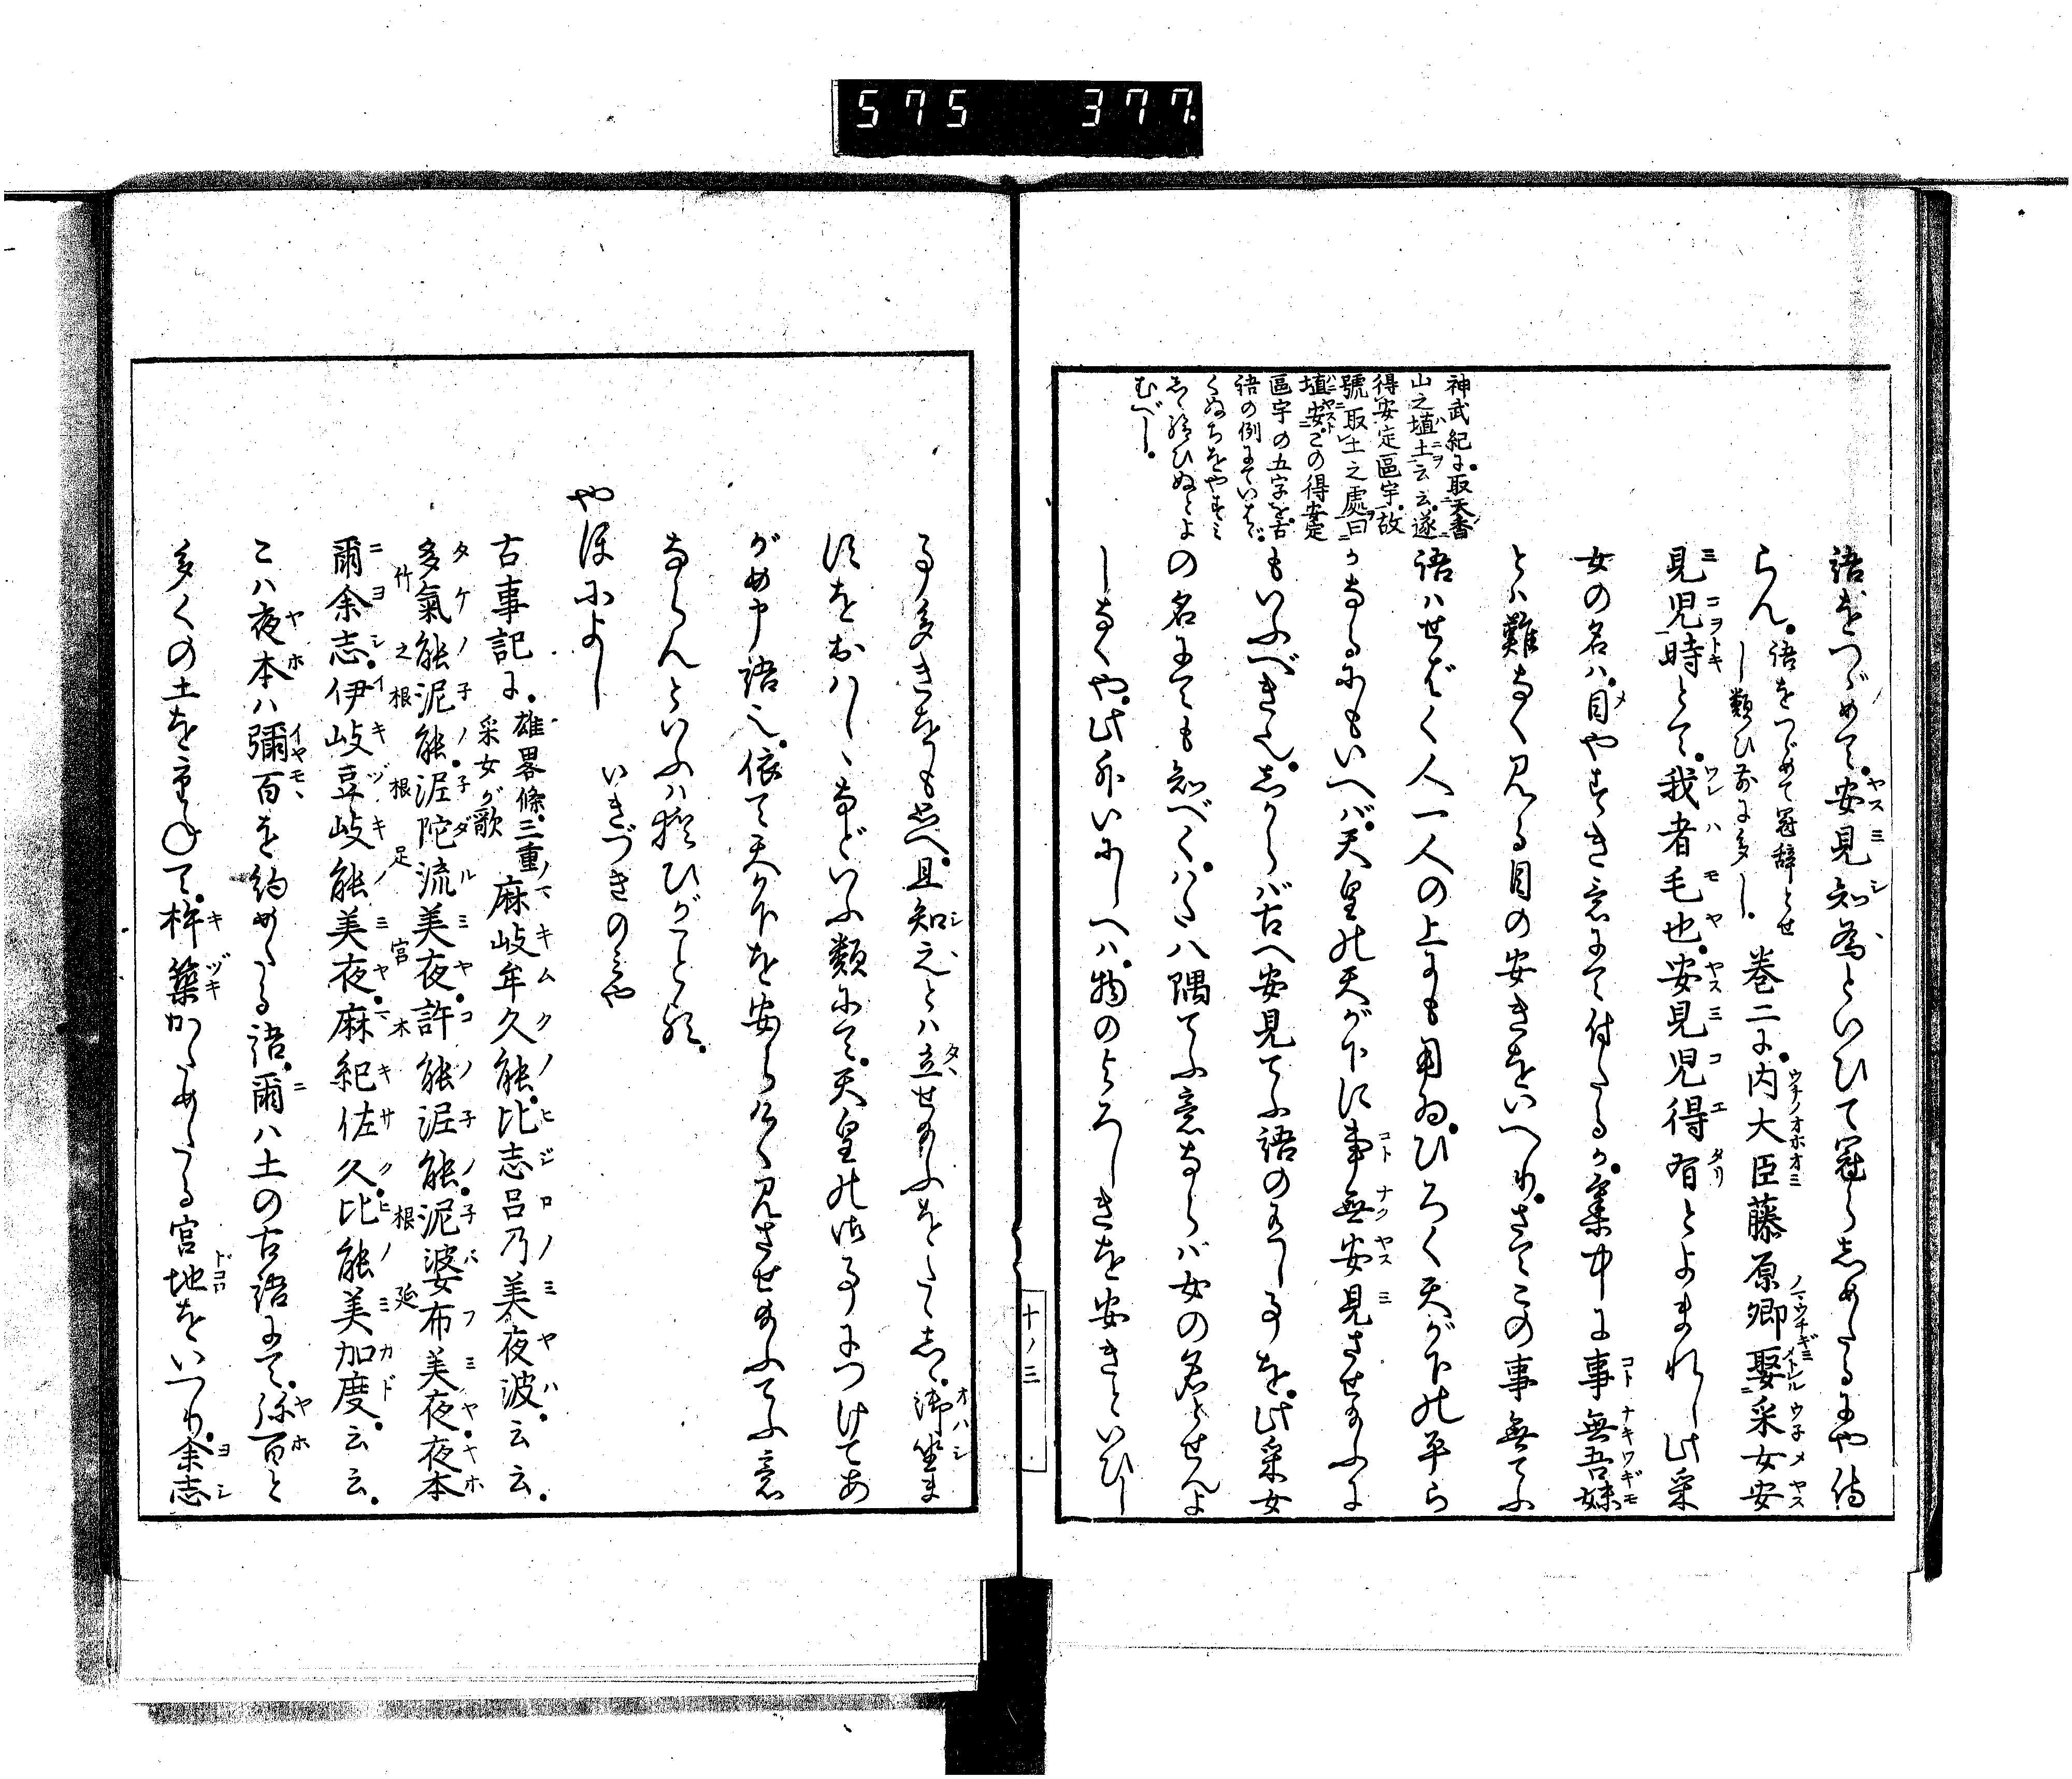 575 377
語をつゞめて、安見知為といひて冠らしめたるにや侍
らん。語をつゞめて冠辞とせし類ひ前に多し。巻二に、内大臣藤原卿娶采女安
見児時とて、我者毛也、安見児得有とよまれし此采
女の名は、目やすき意にて付たるか、集中に事無吾妹
とは難なく見る目の安きをいへり、さてこの事無てふ
語はせばく人一人の上にも用ゐ、ひろく天が下の平ら
かなるにもいへば、天皇の天が下に事無安見させ給ふに
もいふべき也、しからば古へ安見てふ語の有し事を、此采女
の名にても知べく、はた八隅てふ意ならば女の名とせんよ
しなくや、此外いにしへは、物のよろしきを安きといひし
神武紀に、取天香
山之埴土云云、遂
得安定區宇、故
號取土之處曰
埴安、この得安定
區宇の五字を、古
語の例にていはゞ、
くぬちをやすみ
しゝ給ひぬとよ
むべし。
十ノ三
事多きをも思へ、且知之とは立せ給ふをたゝし、御坐ま
すをおはしゝなどいふ類にて、天皇の御事につけてあ
がめ申語也、依て天が下を安らけく見させ給ふてふ意
ならんといふは強ひがこと歟。
やほによし いきづきのみや
古事記に、雄畧條、三重采女が歌 麻岐牟久能、比志呂乃美夜波、云云、
多氣能泥能、泥陀流美夜、許能泥能、泥婆布美夜、夜本
爾余志、伊岐豆岐能美夜、麻紀佐久、比能美加度、云云、
こは夜本は彌百を約めたる語、爾は土の古語にて、弥百と
多くの土を重て、杵築かためたる宮地をいへり、余志